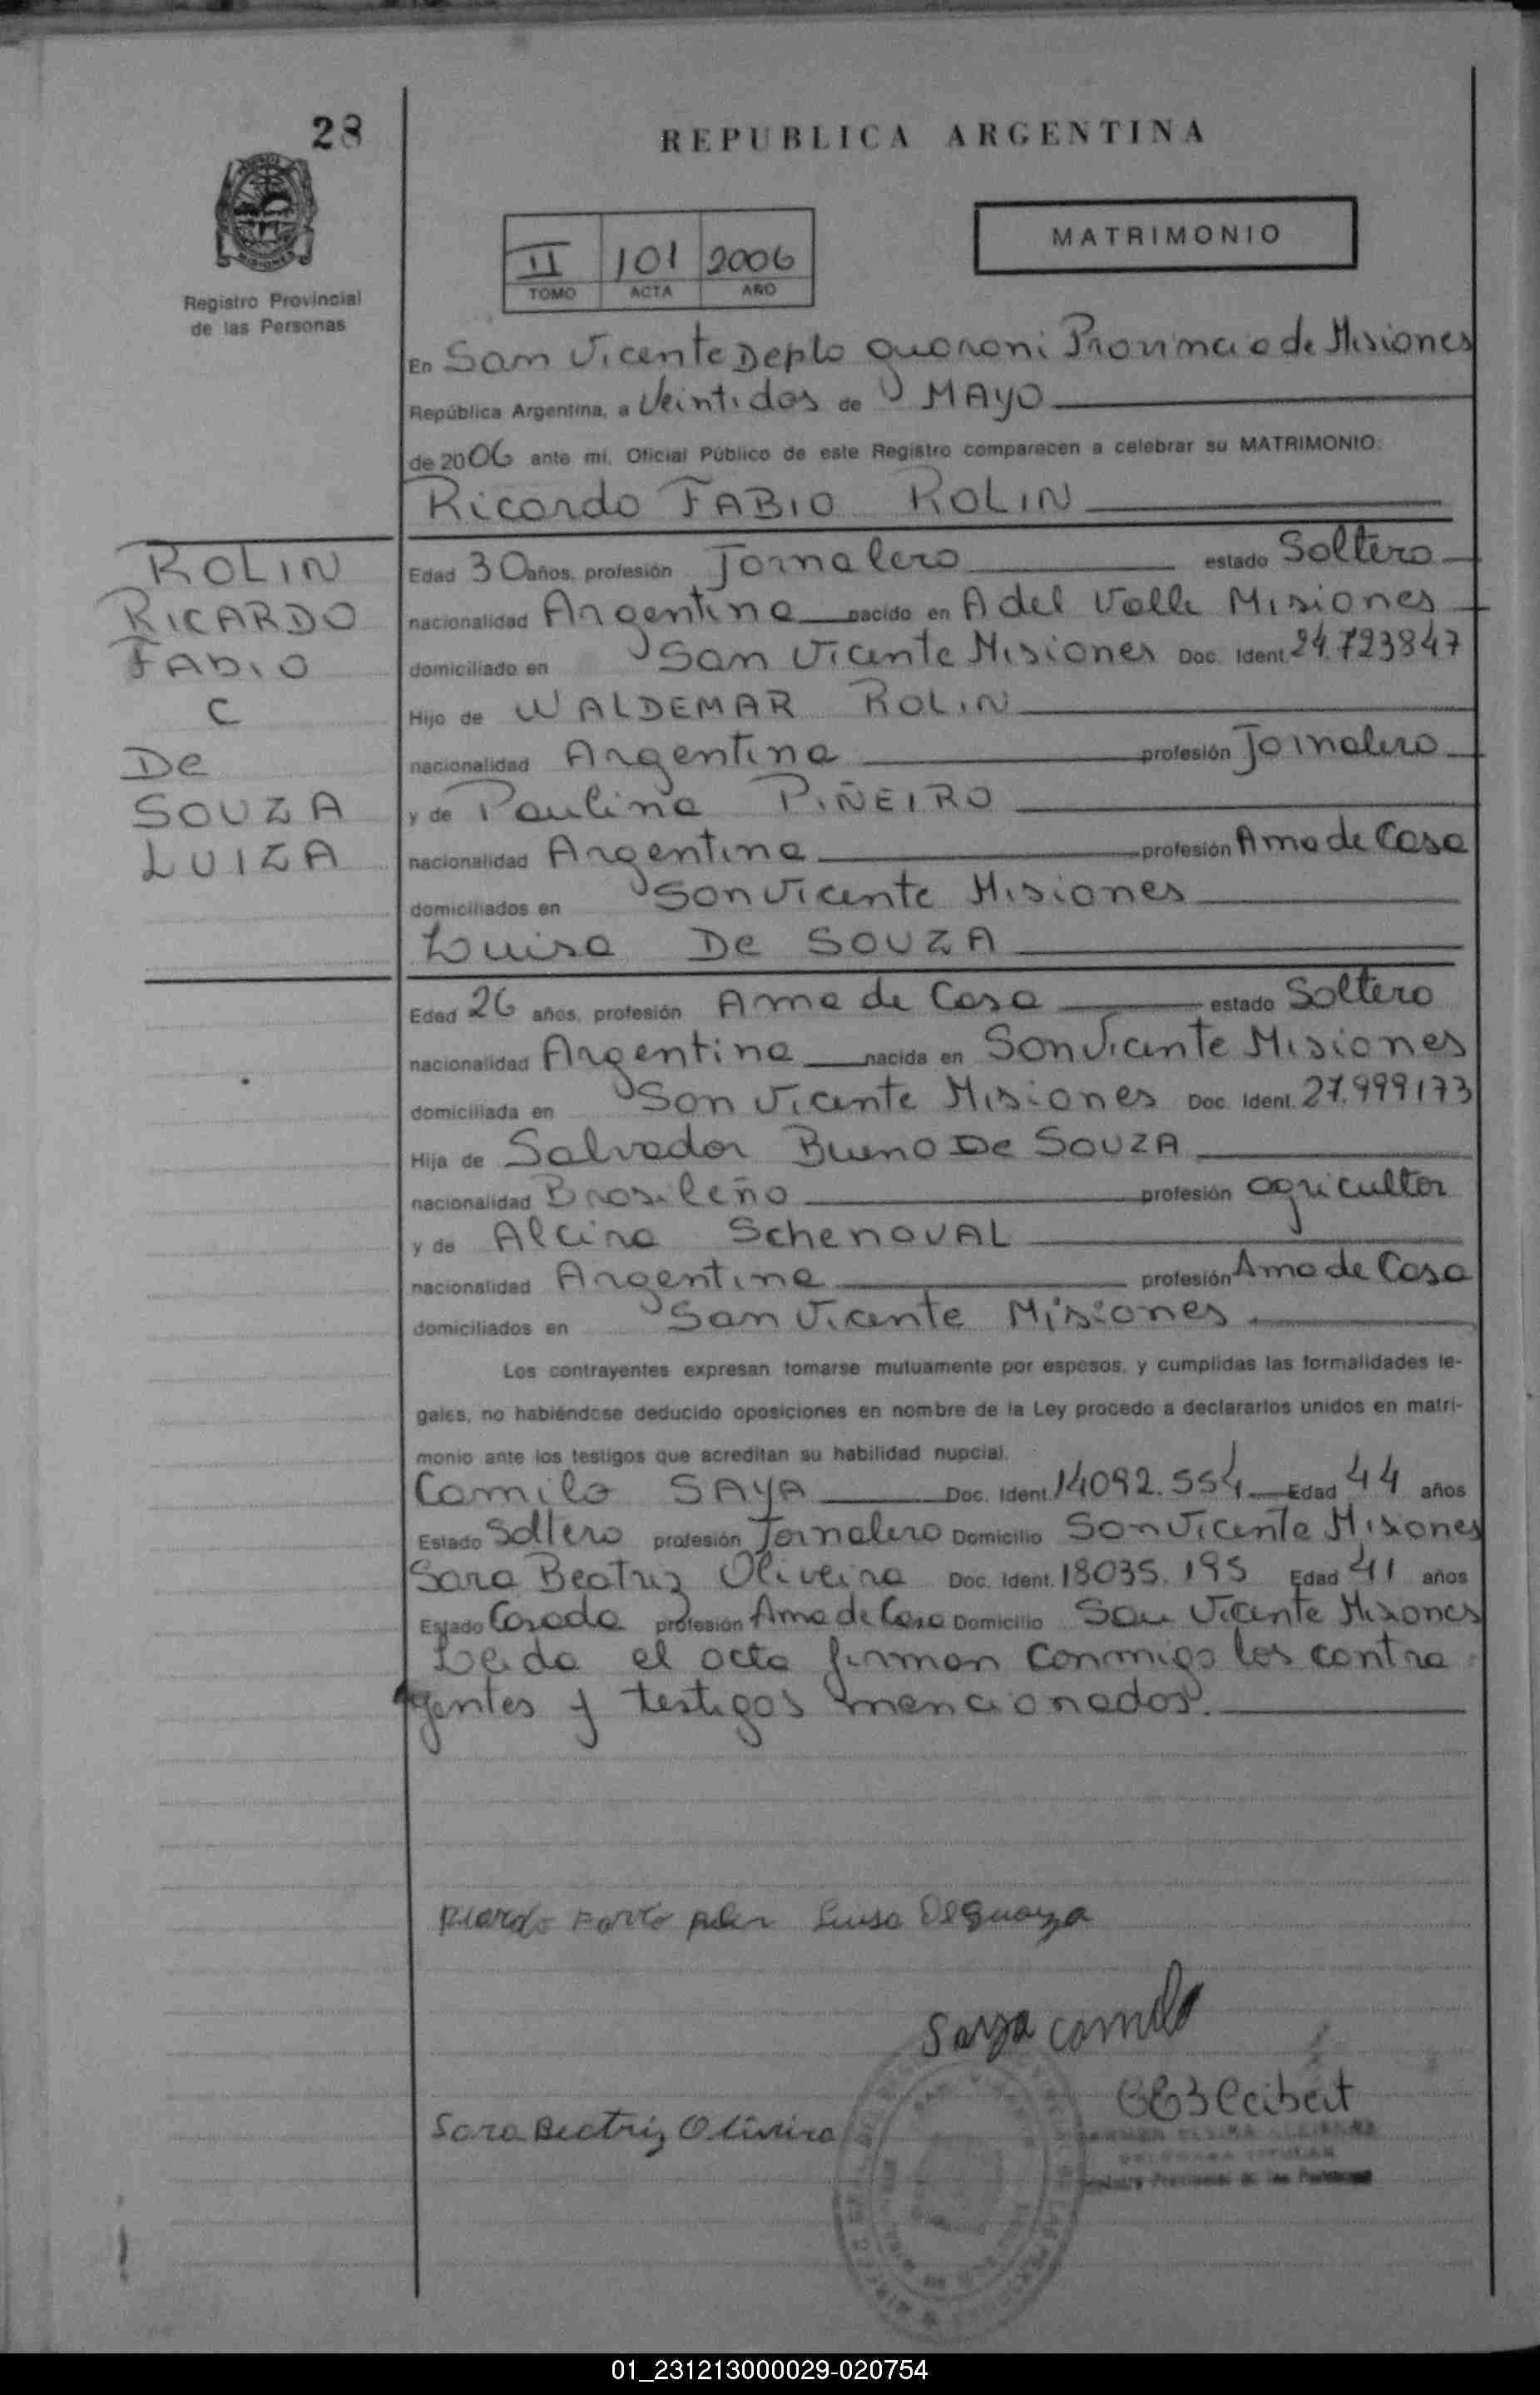 28
REPUBLICA ARGENTINA
MATRIMONIO
II 101 2006
TOMO ACTA AÑO
Registro Provincial
de las Personas
En San Vicente Depto Guarani Provincia de Misiones
República Argentina, a Veintidos de MAYO
de 2006 ante mí, Oficial Público de este Registro comparecen a celebrar su MATRIMONIO:
Ricardo FABIO ROLIN
ROLIN
RICARDO
FABIO
C
De
SOUZA
LUIZA
Edad 30 años, profesión Jornalero estado Soltero
nacionalidad Argentina nacido en A del Valle Misiones
domiciliado en San Vicente Misiones Doc. Ident. 24.723847
Hijo de WALDEMAR ROLIN
nacionalidad Argentina profesión Jornalero
y de Paulina PIÑEIRO
nacionalidad Argentina profesión Ama de Casa
domiciliados en San Vicente Misiones
Luisa De SOUZA
Edad 26 años, profesión Ama de Casa estado Soltero
nacionalidad Argentina nacida en San Vicente Misiones
domiciliada en San Vicente Misiones Doc. Ident. 27.999173
Hija de Salvador Bueno De SOUZA
nacionalidad Brasileño profesión agricultor
y de Alcira SchenoVAL
nacionalidad Argentina profesión Ama de Casa
domiciliados en San Vicente Misiones
Los contrayentes expresan tomarse mutuamente por esposos, y cumplidas las formalidades le-
gales, no habiéndose deducido oposiciones en nombre de la Ley procedo a declararlos unidos en matri-
monio ante los testigos que acreditan su habilidad nupcial.
Camilo SAYA Doc. Ident. 14092.554 Edad 44 años
Estado Soltero profesión Jornalero Domicilio San Vicente Misiones
Sara Beatriz Oliveira Doc. Ident. 18035.195 Edad 41 años
Estado Casada profesión Ama de Casa Domicilio San Vicente Misiones
Leida el acta firman conmigo los contra
yentes y testigos mencionados.
Ricardo Luisa
Saya Camilo
Sara Beatriz Oliveira
Registro Provincial de las Personas
01_231213000029-020754